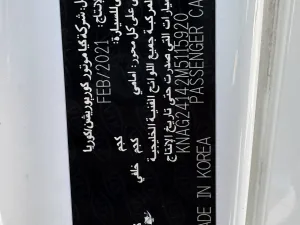 شركة كيا موتور كوربوريشن/كوريا
FEB/2021
للسيارة: كجم
على كل محور: أمامي كجم خلفي
جميع اللوائح الفنية الخليجية
التي صدرت حتى تاريخ الإنتاج
KNAG24142M5115920
PASSENGER CA
MADE IN KOREA